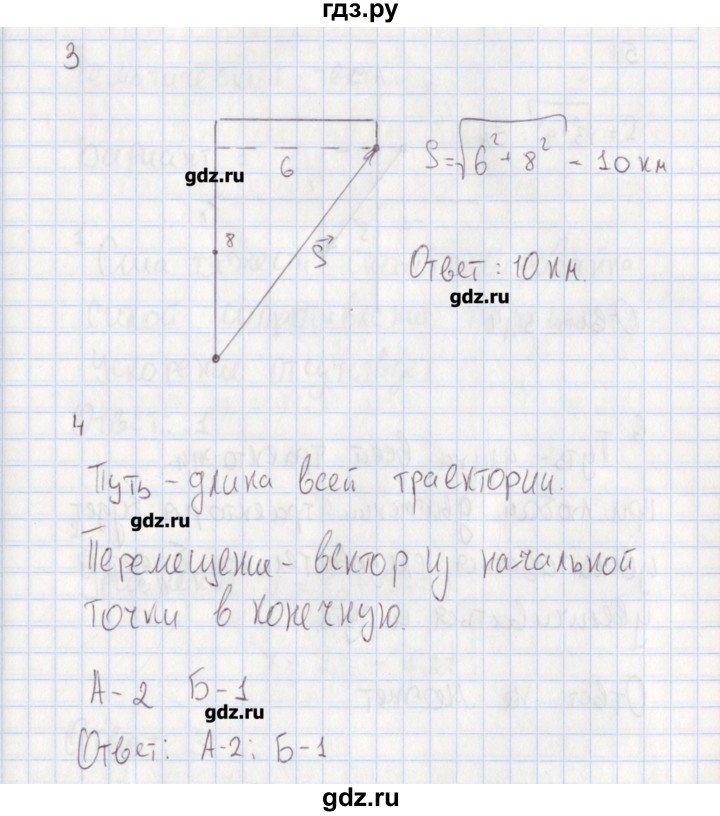 гдз.ру
3
6
gdz.ru
S=√6²+8² = 10 км
8
S
Ответ: 10 км.
gdz.ru
4
Путь – длина всей траектории.
gdz.ru
Перемещение – вектор из начальной
точки в конечную.
А-2 Б-1
gdz.ru
Ответ: А-2; Б-1
gdz.ru